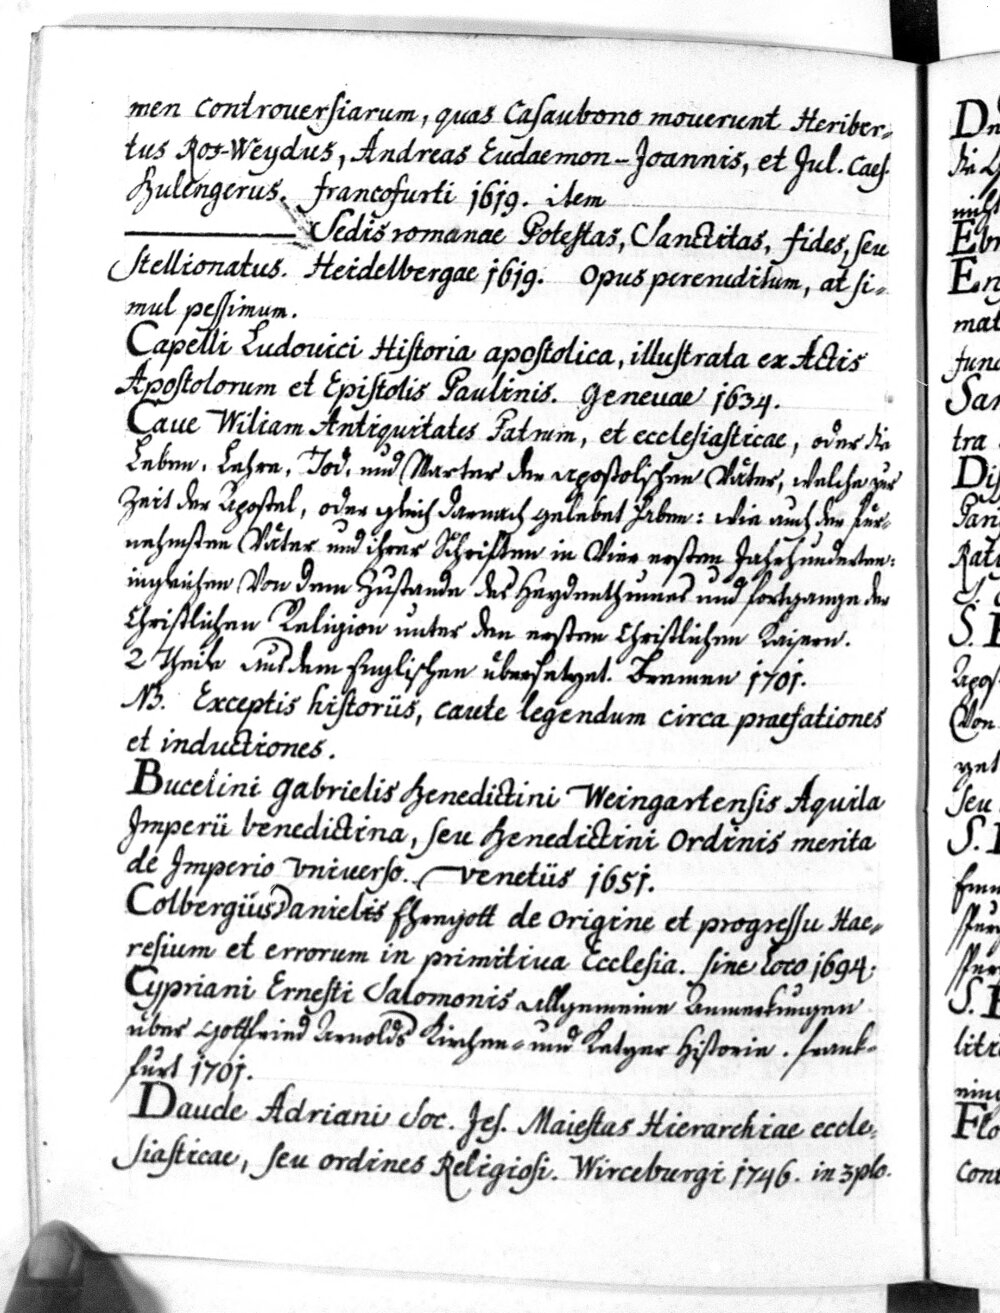 men controuersiarum, quas Casaubono mouerunt Heriber-
tus Ros-Weydus, Andreas Eudaemon-Joannis, et Jul. Caes.
Bulengerus. francofurti 1619. item
Sedis romanae Potestas, Sanctitas, fides, seu
Stellionatus. Heidelbergae 1619. Opus pereruditum, at si-
mul pessimum.
Capelli Ludouici Historia apostolica, illustrata ex Actis
Apostolorum et Epistolis Paulinis. Geneuae 1634.
Caue Wiliam Antiquitates Patrum, et ecclesiasticae, oder die
Leben, Lehre, Tod, und Marter der Apostolischen Väter, welche zur
Zeit der Apostel, oder gleich darnach gelebet haben: wie auch der für-
nehmsten Väter und ihrer Schriften in Vier ersten Jahrhunderten:
ingleichen Von dem Zustande des Heydenthumes und fortgange der
Christlichen Religion unter den ersten Christlichen Kaisern.
2 Theile aus dem Englischen übersetzet. Bremen 1701.
NB. Exceptis historiis, caute legendum circa praefationes
et inductiones.
Bucelini Gabrielis Benedictini Weingartensis Aquila
Imperii benedictina, seu Benedictini Ordinis merita
de Imperio vniuerso. Venetiis 1651.
Colbergius Danielis Ehregott de Origine et progressu Hae-
resium et errorum in primitiua Ecclesia. sine loco 1694.
Cypriani Ernesti Salomonis Allgemeine Anmerkungen
über Gottfried Arnolds Kirchen- und Ketzer Historie. frank-
furt 1701.
Daude Adriani Soc. Jes. Maiestas Hierarchiae eccle-
siasticae, seu ordines Religiosi. Wirceburgi 1746. in 3plo.